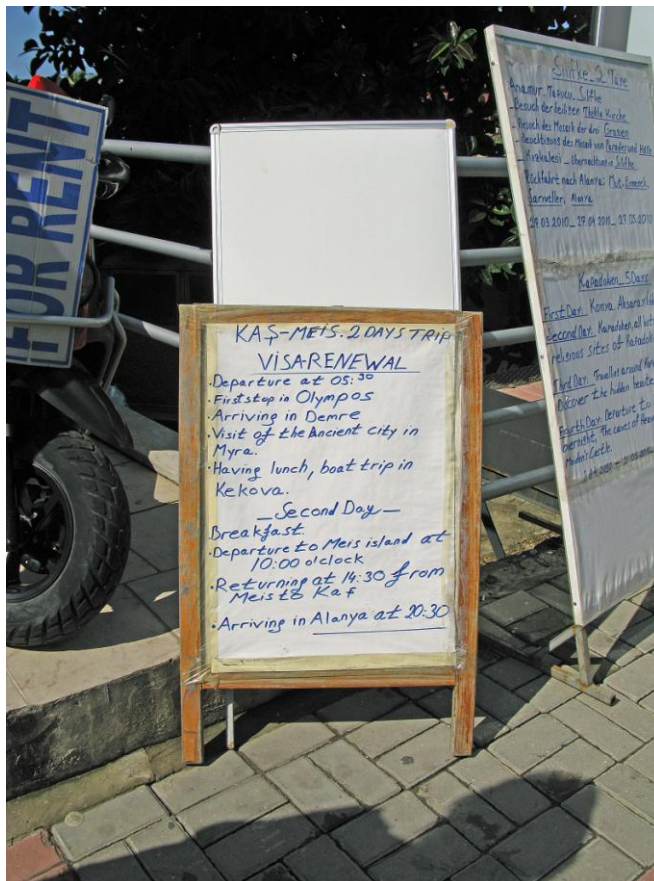 FOR RENT
KAŞ-MEIS. 2 DAYS TRIP
VISA RENEWAL
.Departure at 05:30
.First stop in Olympos
.Arriving in Demre
.Visit of the Ancient city in
Myra.
.Having lunch, boat trip in
Kekova.
_Second Day_
Breakfast.
.Departure to Meis island at
10:00 o'clock
.Returning at 14:30 from
Meis to Kaş
.Arriving in Alanya at 20:30
Silifke_2 Tage
Anamur, Taşucu_Silifke
_Besuch der heiligen Thekla Kirche
_Besuch des Mosaik der drei Grazien
_Besichtigung des Mosaik von Paradies und Hölle
_Kızkalesi_Übernachtung in Silifke
Rückfahrt nach Alanya: Mut, Ermenek
Sarıveller, Alanya
2010_27.04 2010_27.05 2010
Kapadokien_5 Days
First Day: Konya, Aksaray
Second Day: Kapadokien, all
religious sites of Kapadok
Third Day: Travelles around
Discover the hidden
Fourth Day: Departure to
overnight, The caves of
Maiden's Castle.